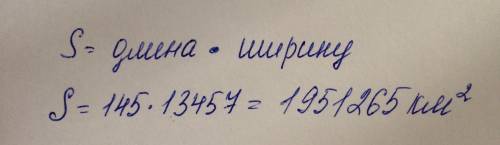 S = длина • ширину
S = 145 · 13457 = 1951265 км²